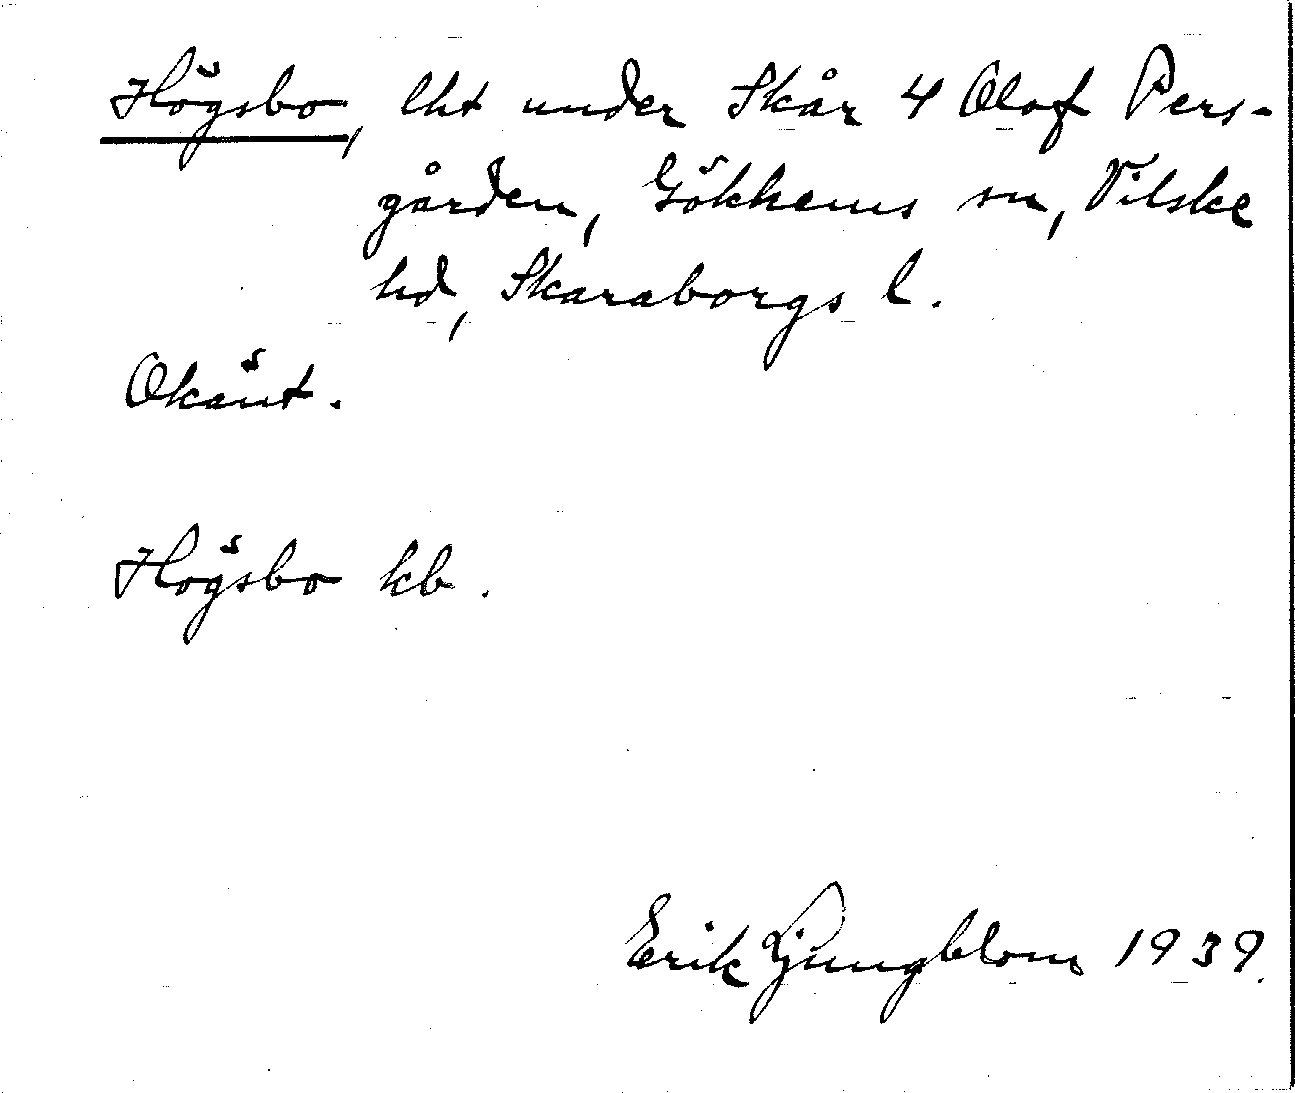 Högsbo, lht under Skår 4 Olof Pers-
gården, Gökhems sn, Vilske
hd, Skaraborgs l.
Okänt.
Högsbo kb.
Erik Ljungblom 1939.